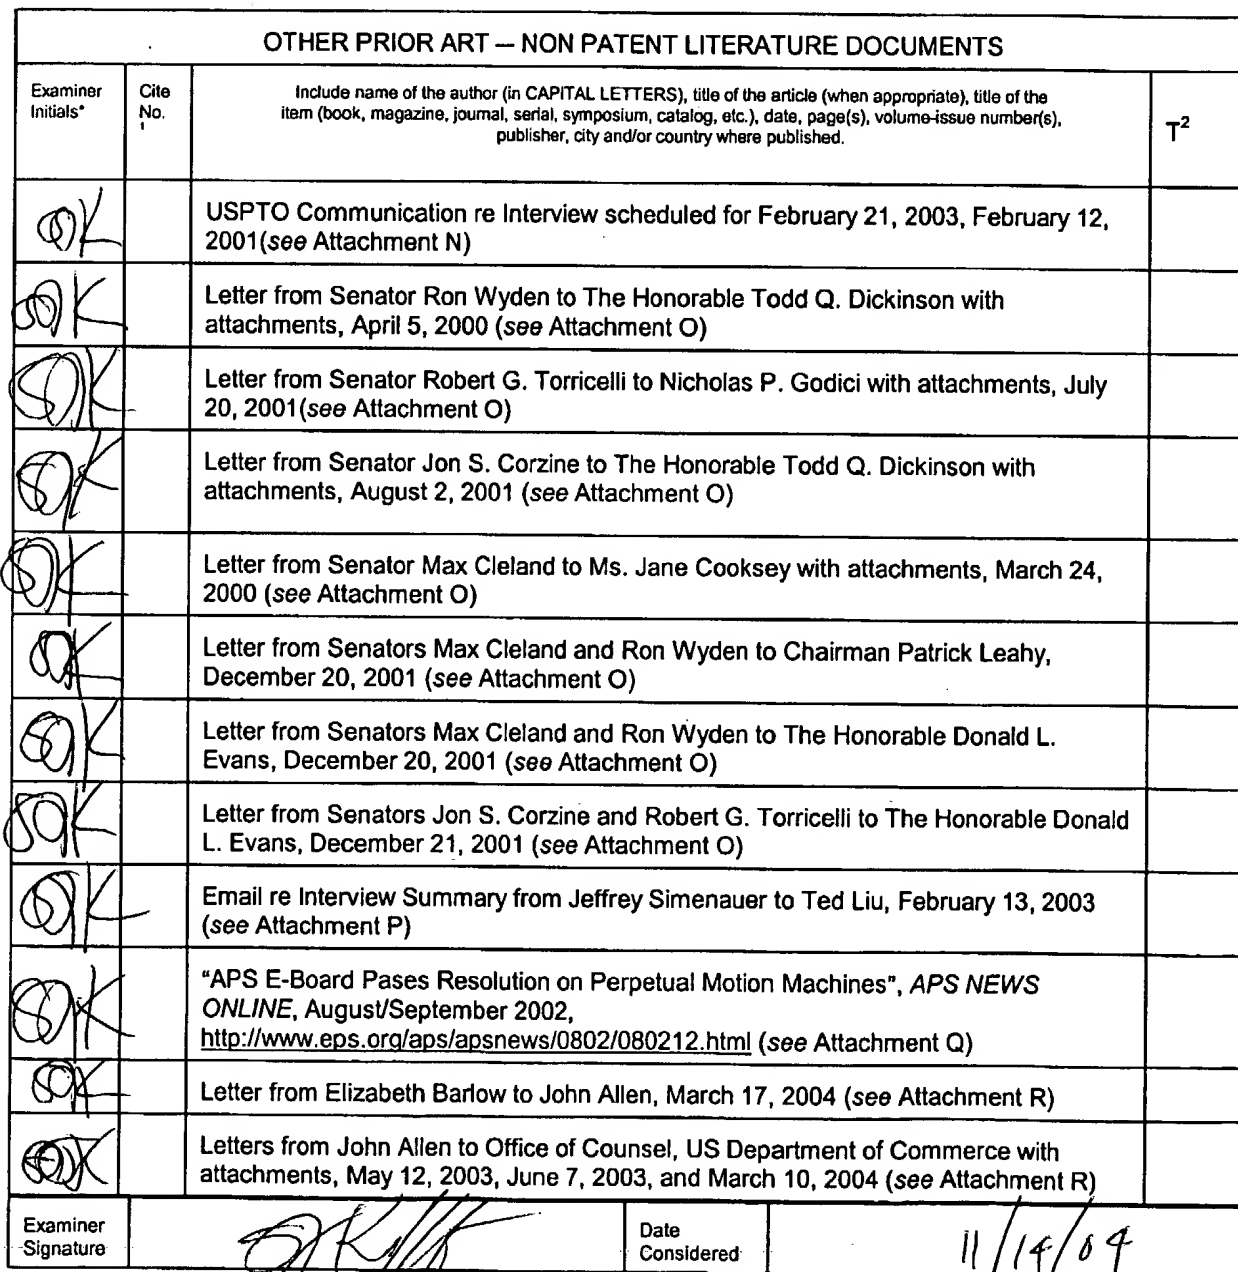 OTHER PRIOR ART – NON PATENT LITERATURE DOCUMENTS
Examiner Initials*
Cite No. 1
Include name of the author (in CAPITAL LETTERS), title of the article (when appropriate), title of the
item (book, magazine, journal, serial, symposium, catalog, etc.), date, page(s), volume-issue number(s),
publisher, city and/or country where published.
T2
USPTO Communication re Interview scheduled for February 21, 2003, February 12,
2001(see Attachment N)
Letter from Senator Ron Wyden to The Honorable Todd Q. Dickinson with
attachments, April 5, 2000 (see Attachment O)
Letter from Senator Robert G. Torricelli to Nicholas P. Godici with attachments, July
20, 2001(see Attachment O)
Letter from Senator Jon S. Corzine to The Honorable Todd Q. Dickinson with
attachments, August 2, 2001 (see Attachment O)
Letter from Senator Max Cleland to Ms. Jane Cooksey with attachments, March 24,
2000 (see Attachment O)
Letter from Senators Max Cleland and Ron Wyden to Chairman Patrick Leahy,
December 20, 2001 (see Attachment O)
Letter from Senators Max Cleland and Ron Wyden to The Honorable Donald L.
Evans, December 20, 2001 (see Attachment O)
Letter from Senators Jon S. Corzine and Robert G. Torricelli to The Honorable Donald
L. Evans, December 21, 2001 (see Attachment O)
Email re Interview Summary from Jeffrey Simenauer to Ted Liu, February 13, 2003
(see Attachment P)
"APS E-Board Pases Resolution on Perpetual Motion Machines", APS NEWS
ONLINE, August/September 2002,
http://www.eps.org/aps/apsnews/0802/080212.html (see Attachment Q)
Letter from Elizabeth Barlow to John Allen, March 17, 2004 (see Attachment R)
Letters from John Allen to Office of Counsel, US Department of Commerce with
attachments, May 12, 2003, June 7, 2003, and March 10, 2004 (see Attachment R)
Examiner
Signature
Date
Considered
11/14/04